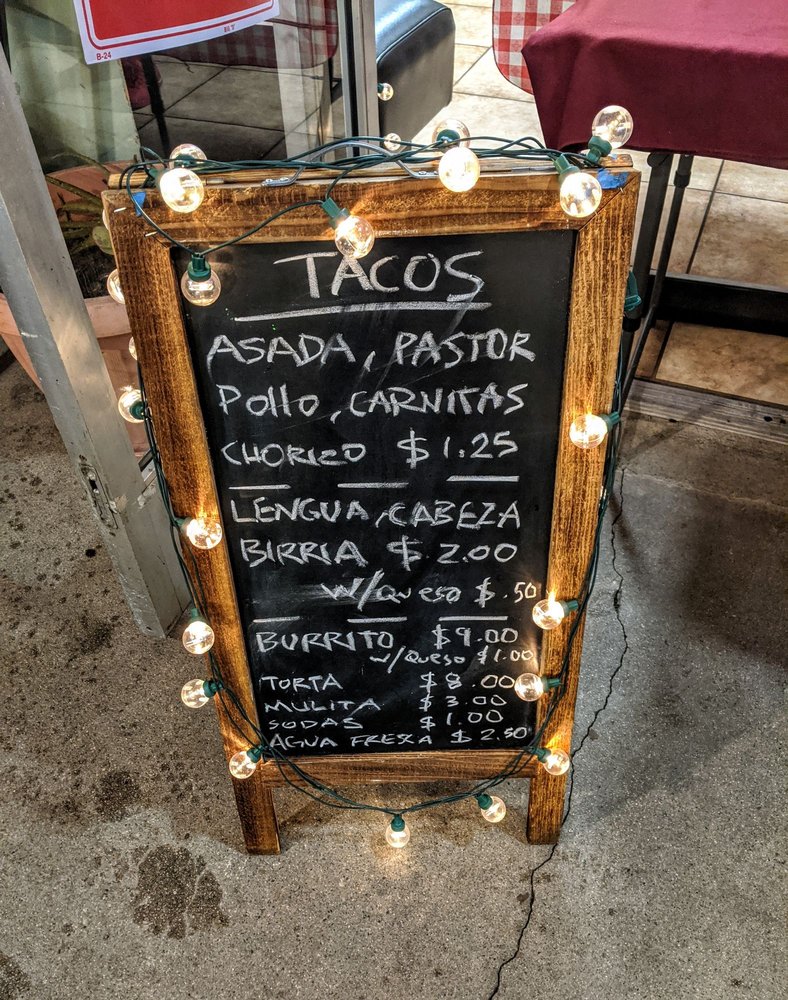 B-24
TACOS
ASADA, PASTOR
Pollo, CARNITAS
CHORIZO $1.25
LENGUA, CABEZA
BIRRIA $2.00
W/Queso $.50
BURRITO $9.00
w/Queso $1.00
TORTA $8.00
MULITA $3.00
SODAS $1.00
AGUA FRESA $2.50